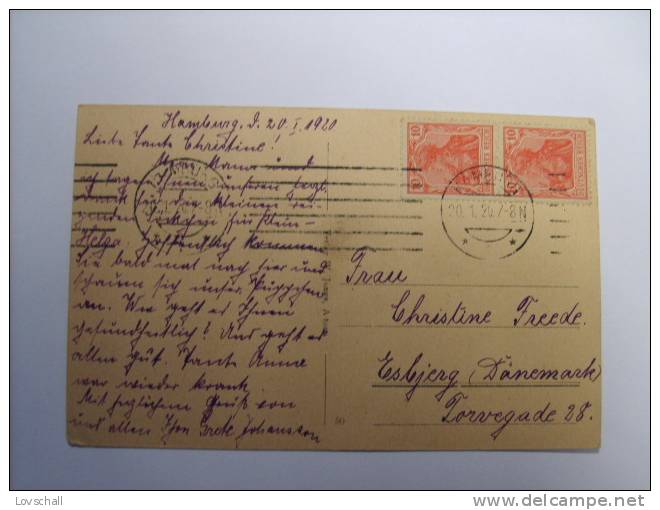 Hamburg, d. 20. I. 1920
Liebe Tante Christine!
Mama und
ich sagen Ihnen unseren herzl.
Dank für die kleinen rei-
zenden für Klein-
Helga. Hoffentlich kommen
Sie bald mal nach hier und
schauen sich unser Püppchen
an. Wie geht es Ihnen
gesundheitlich? Uns geht es
allen gut. Tante Anna
war wieder krank.
Mit herzlichem Gruß von
uns allen Ihre Grete Johansson
10 10
DEUTSCHES REICH
HAMBURG
20.1.20.7-8N
* *
Frau
Christine Freede.
Esbjerg (Dänemark)
Torvegade 28.
Lovschall
delcampe.net